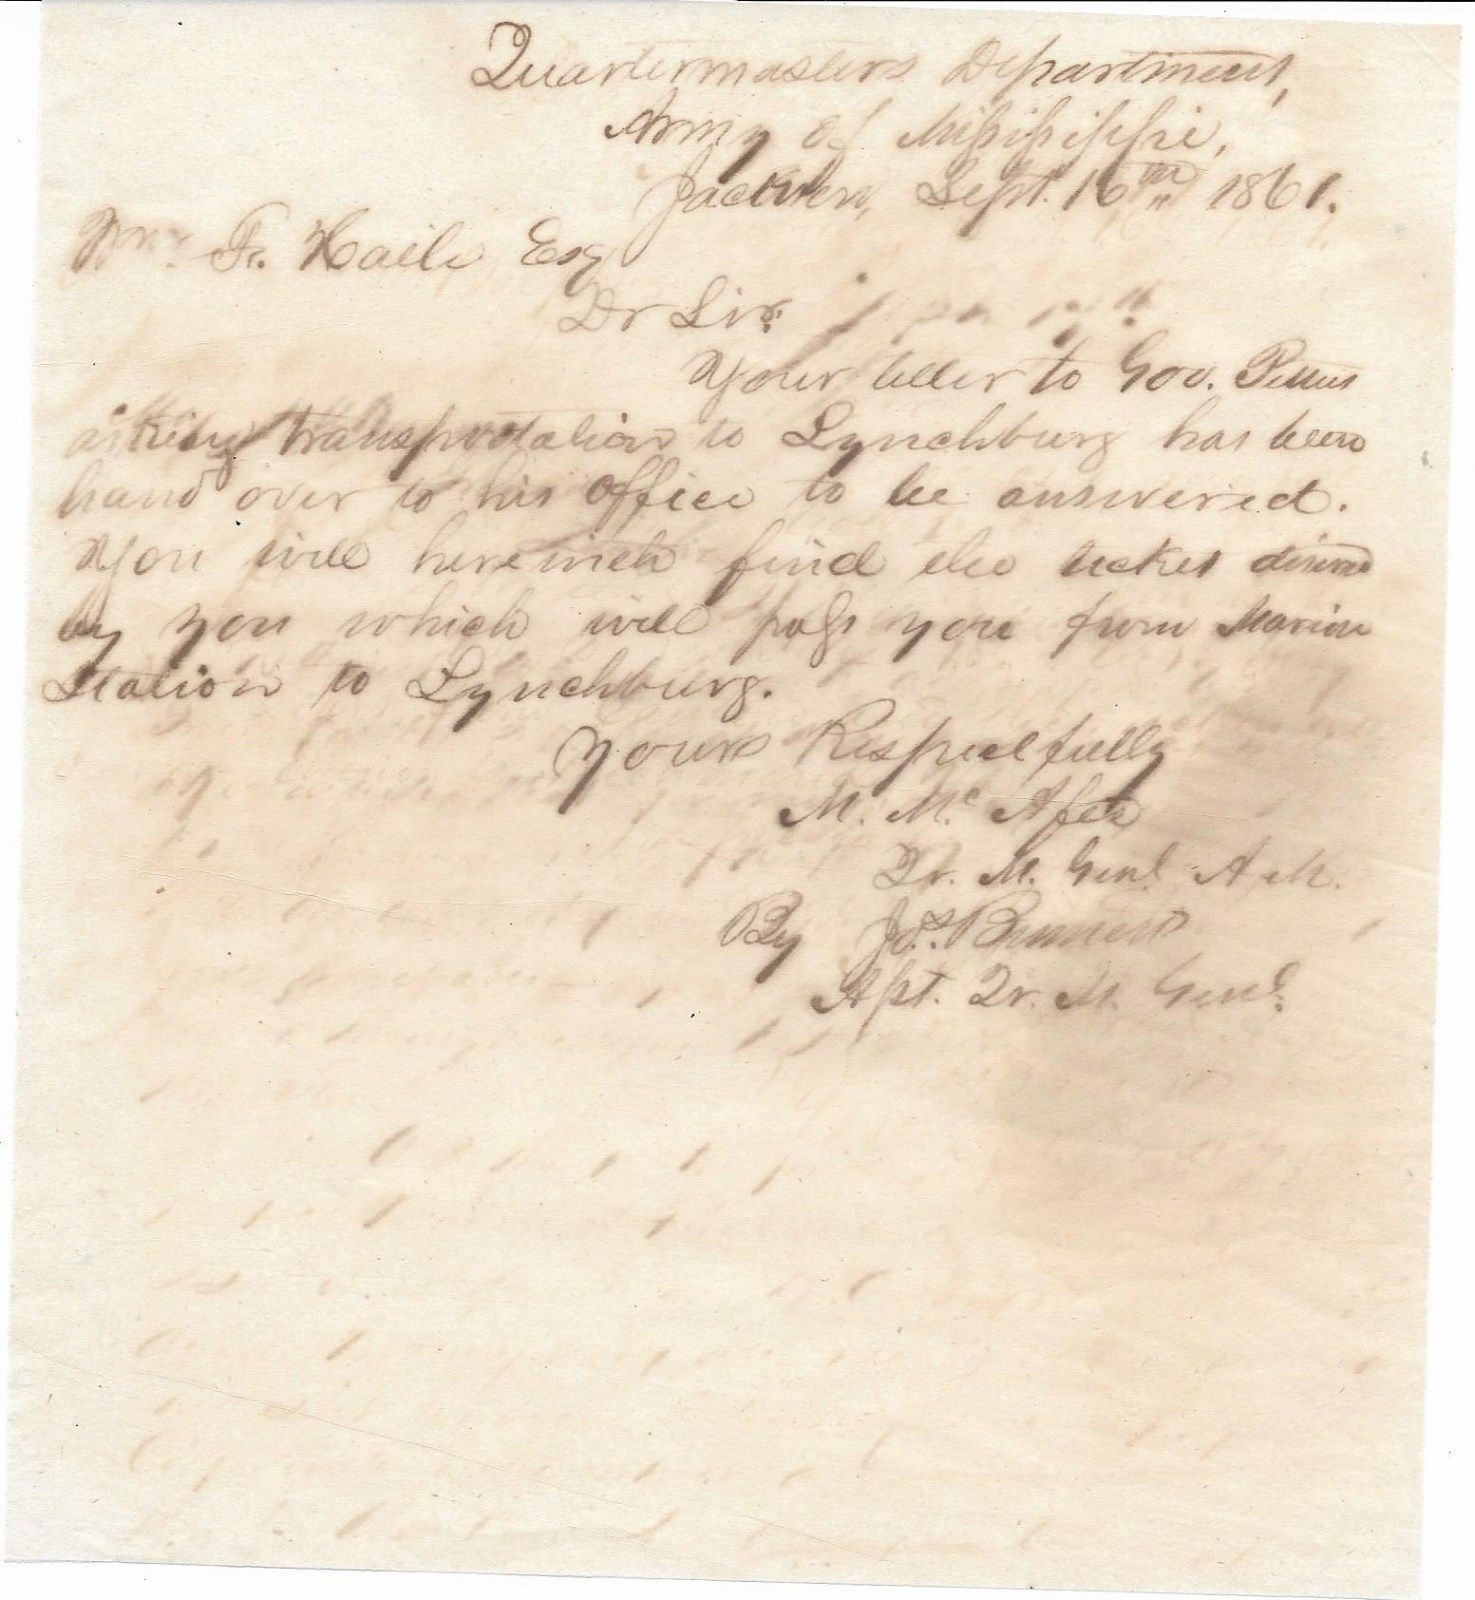 Quartermasters Department,
Army of Mississippi,
Jackson, Sept. 16th 1861.
Wm. F. Haile Esq
Dr Sir.
Your letter to Gov. Pettus
asking transportation to Lynchburg has been
hand over to his office to be answered.
You will herewith find the ticket desired
by you which will pass you from Marion
Station to Lynchburg.
Yours Respectfully
M. McAfee
Qr. M. Genl. A M.
By Jos. Bennett
Asst. Qr. M. Genl.